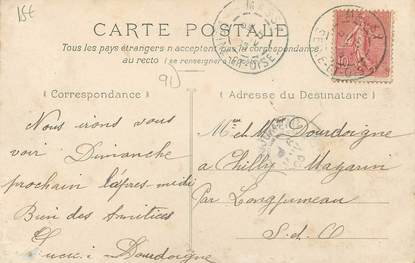 15€
CARTE POSTALE
Tous les pays étrangers n'acceptent pas la correspondance
au recto (se renseigner à la
91
Correspondance
Adresse du Destinataire
Nous irons vous
voir Dimanche
prochain l'après-midi
Bien des Amitiés
Dourdoigne
Mme et Mr Dourdoigne
à Chilly Mazarin
Par Longjumeau
S-et-O